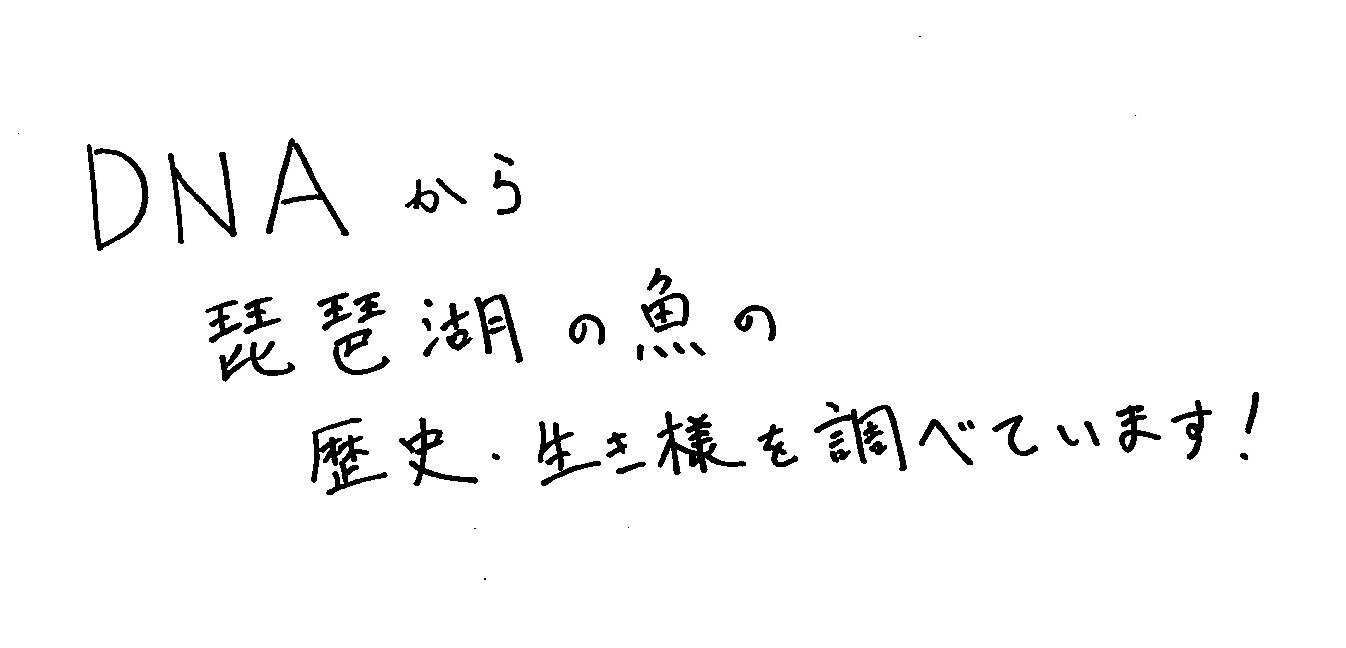 DNAから
琵琶湖の魚の
歴史・生き様を調べています！